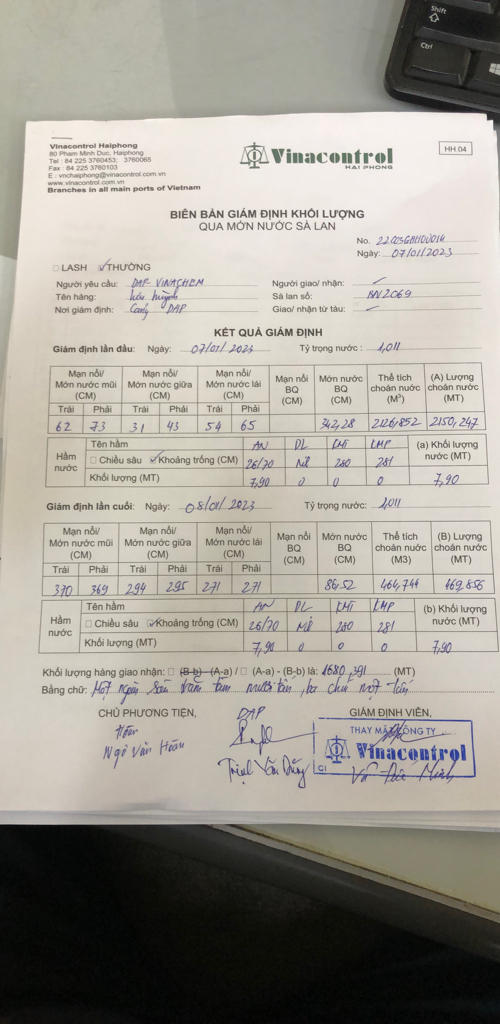 Shift
Ctrl
Vinacontrol Haiphong
80 Pham Minh Duc, Haiphong
Tel : 84 225 3760453; 3760065
Fax : 84 225 3760103
E : vnchaiphong@vinacontrol.com.vn
www.vinacontrol.com.vn
Branches in all main ports of Vietnam
Vinacontrol
HAI PHONG
HH.04
BIÊN BẢN GIÁM ĐỊNH KHỐI LƯỢNG
QUA MỚN NƯỚC SÀ LAN
No.
Ngày: 07/01/2023
LASH THƯỜNG
Người yêu cầu: DAP-VINACHEM Người giao/ nhận:
Tên hàng: lưu huỳnh Sà lan số: 2069
Nơi giám định: Cảng DAP Giao/ nhận từ tàu:
KẾT QUẢ GIÁM ĐỊNH
Giám định lần đầu: Ngày: 07/01/2023 Tỷ trọng nước : 1,011
Mạn nổi/ Mớn nước mũi (CM) Mạn nổi/ Mớn nước giữa (CM) Mạn nổi/ Mớn nước lái (CM) Mạn nổi BQ (CM) Mớn nước BQ (CM) Thể tích choán nước (M³) (A) Lượng choán nước (MT)
Trái Phải Trái Phải Trái Phải
62 73 31 43 54 65 342,28 2126,852 2150,247
Hầm nước Tên hầm AN DL KMT KMP (a) Khối lượng nước (MT)
Chiều sâu Khoảng trống (CM) 26/70 Nil 280 281
Khối lượng (MT) 7,90 0 0 0 7,90
Giám định lần cuối: Ngày: 08/01/2023 Tỷ trọng nước: 1,011
Mạn nổi/ Mớn nước mũi (CM) Mạn nổi/ Mớn nước giữa (CM) Mạn nổi/ Mớn nước lái (CM) Mạn nổi BQ (CM) Mớn nước BQ (CM) Thể tích choán nước (M3) (B) Lượng choán nước (MT)
Trái Phải Trái Phải Trái Phải
370 369 294 295 271 271 86,52 464,744 469,856
Hầm nước Tên hầm AN DL KMT KMP (b) Khối lượng nước (MT)
Chiều sâu Khoảng trống (CM) 26/70 Nil 280 281
Khối lượng (MT) 7,90 0 0 0 7,90
Khối lượng hàng giao nhận: (B-b) - (A-a) / (A-a) - (B-b) là: 1680,391 (MT)
Bằng chữ: Một ngàn sáu trăm tám mươi tấn, ba chín một
CHỦ PHƯƠNG TIỆN, DAP GIÁM ĐỊNH VIÊN,
Hoàn
Ngô Văn Hoàn
Trịnh Văn Dũng
THAY MẶT CÔNG TY
Vinacontrol